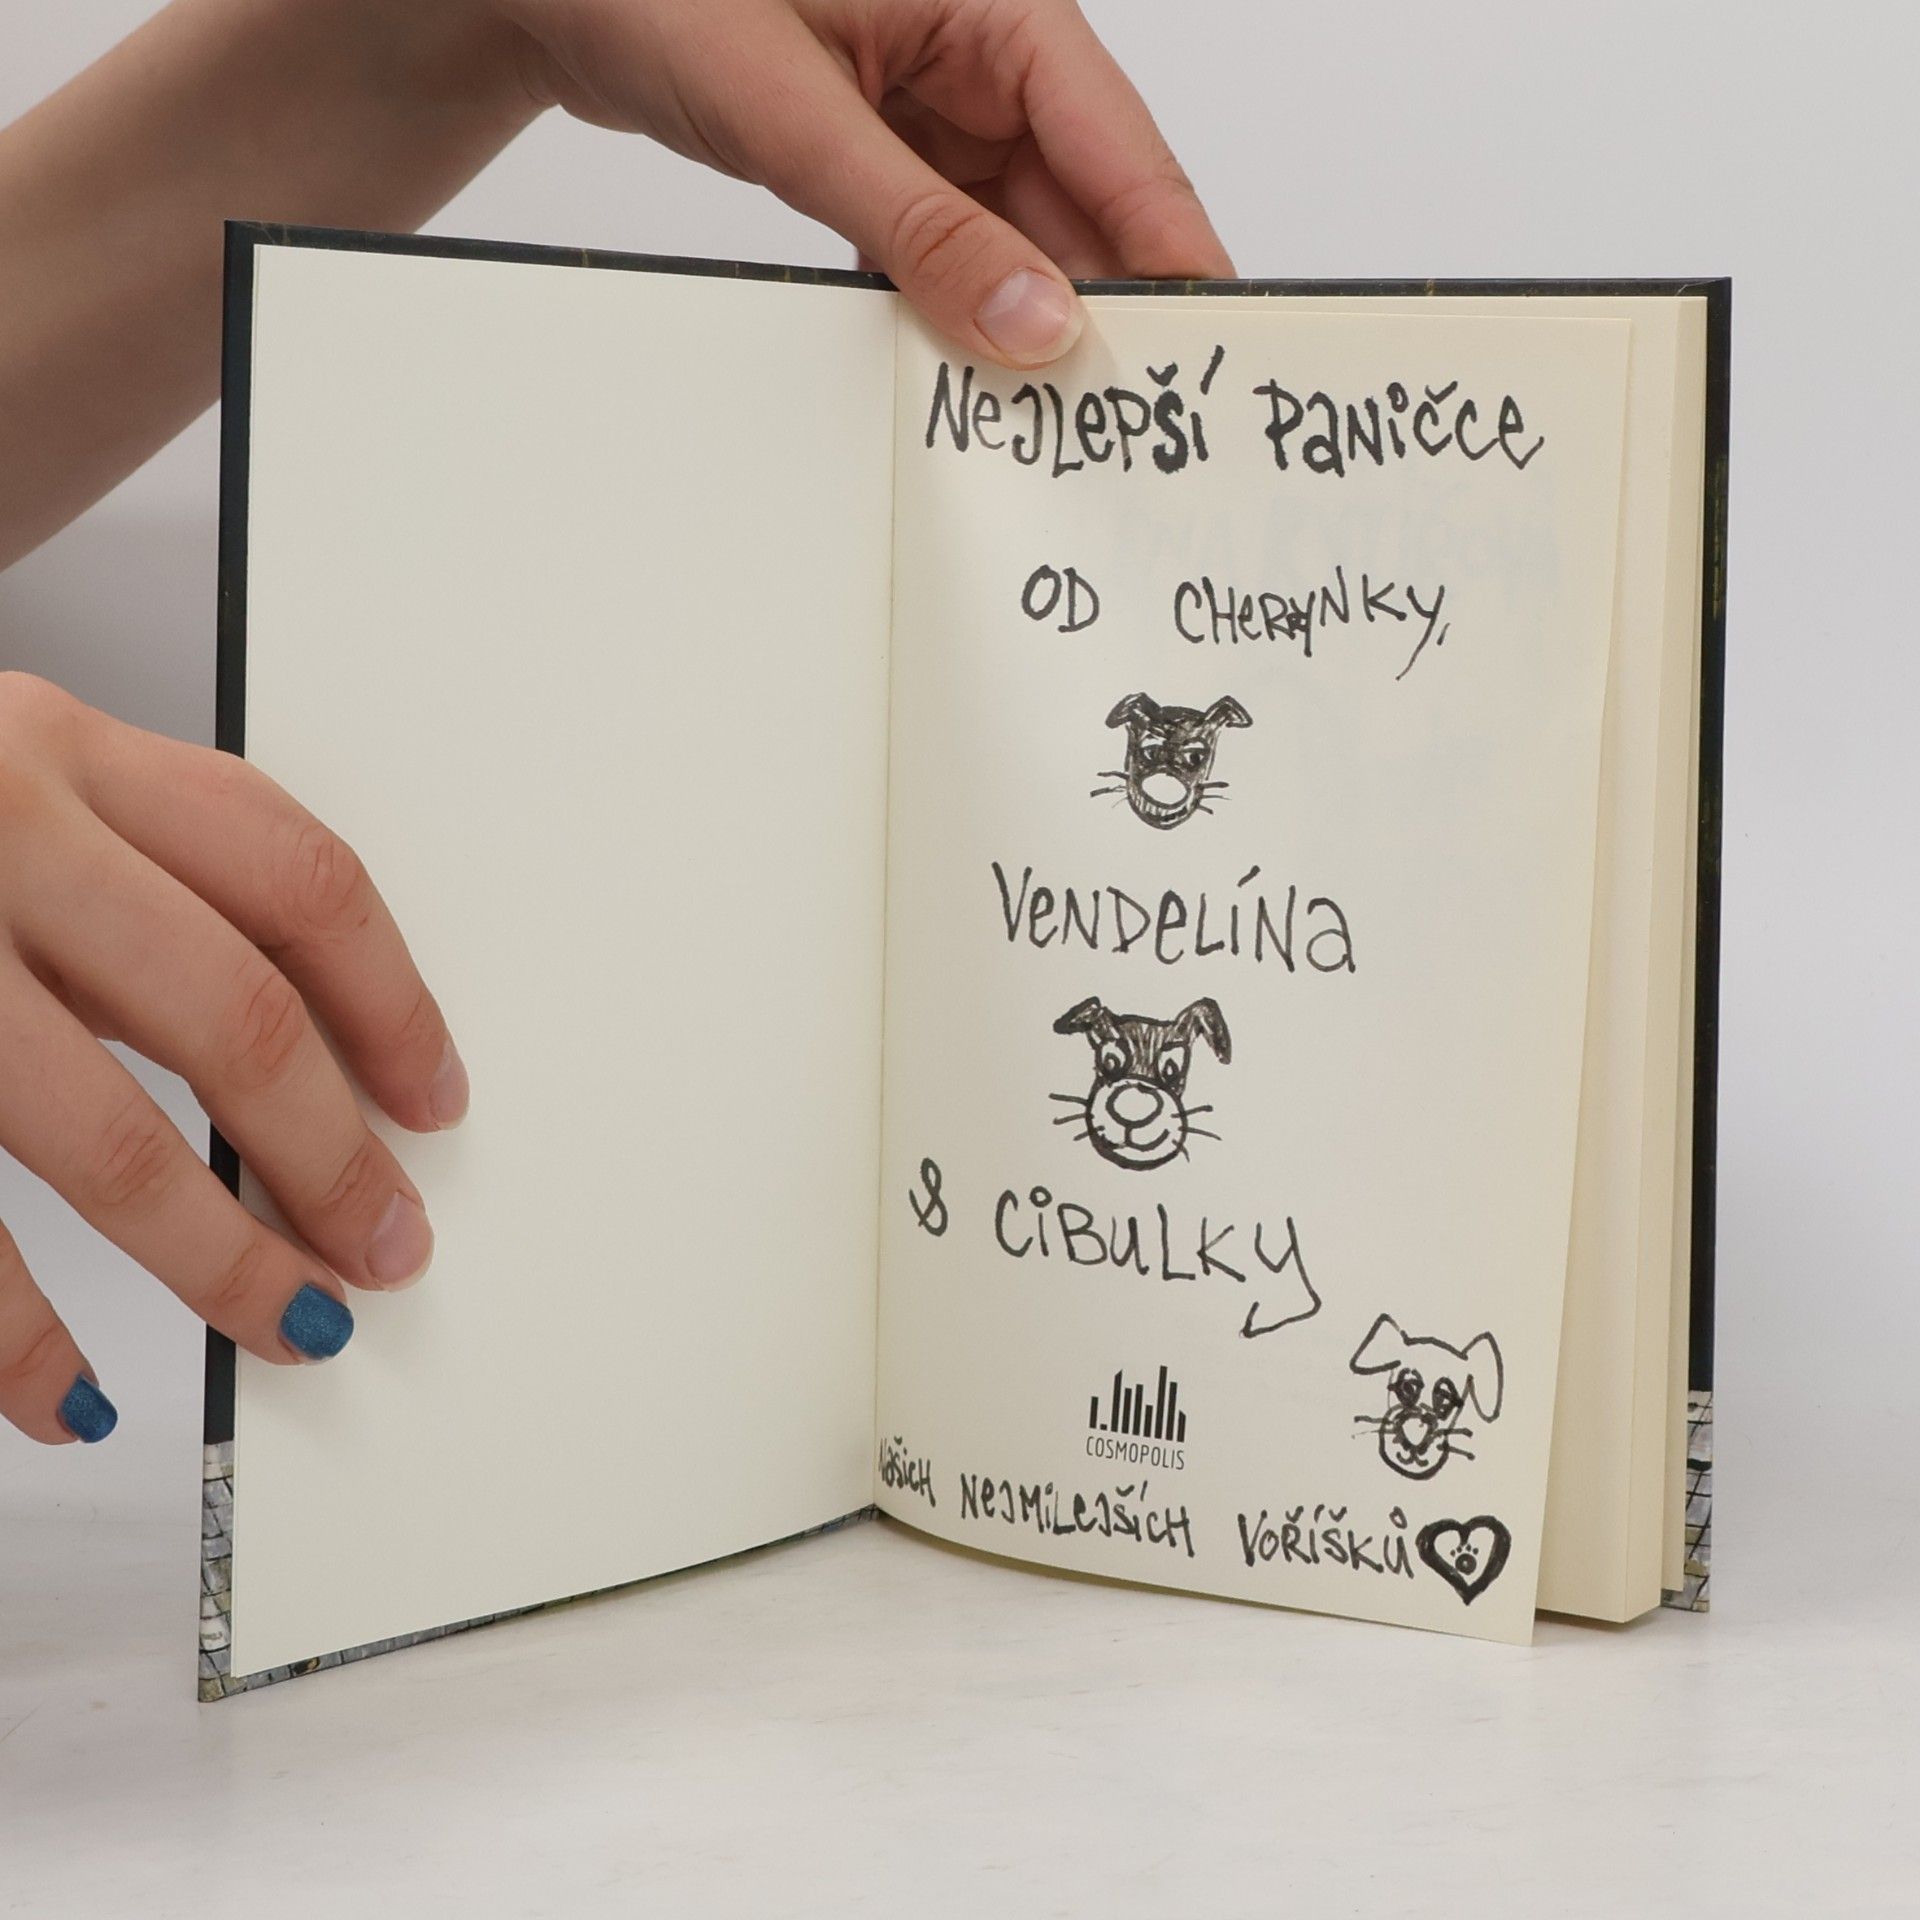 Nejlepší paničce
od Cherynky,
Vendelína
& Cibulky
COSMOPOLIS
našich nejmilejších voříšků